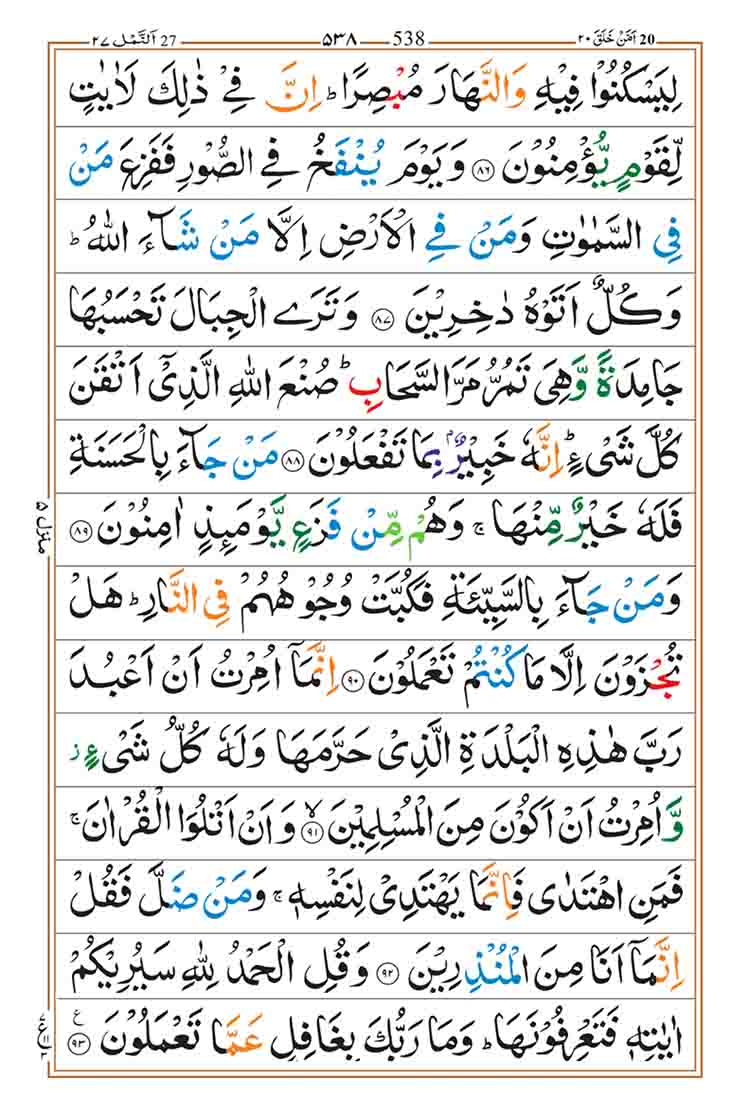 20 اَمَّنْ خَلَقَ ٢٠ 538 ٥٣٨ 27 اَلنَّمْل ٢٧
لِيَسْكُنُوْا فِيْهِ وَالنَّهَارَ مُبْصِرًا ؕ اِنَّ فِيْ ذٰلِكَ لَاٰيٰتٍ
لِّقَوْمٍ يُّؤْمِنُوْنَ ﴿٨٦﴾ وَيَوْمَ يُنْفَخُ فِي الصُّوْرِ فَفَزِعَ مَنْ
فِي السَّمٰوٰتِ وَمَنْ فِي الْاَرْضِ اِلَّا مَنْ شَآءَ اللّٰهُ ؕ
وَكُلٌّ اَتَوْهُ دٰخِرِيْنَ ﴿٨٧﴾ وَتَرَى الْجِبَالَ تَحْسَبُهَا
جَامِدَةً وَّهِيَ تَمُرُّ مَرَّ السَّحَابِ ؕ صُنْعَ اللّٰهِ الَّذِيْٓ اَتْقَنَ
كُلَّ شَيْءٍ ؕ اِنَّهٗ خَبِيْرٌۢ بِمَا تَفْعَلُوْنَ ﴿٨٨﴾ مَنْ جَآءَ بِالْحَسَنَةِ
فَلَهٗ خَيْرٌ مِّنْهَا ۚ وَهُمْ مِّنْ فَزَعٍ يَّوْمَئِذٍ اٰمِنُوْنَ ﴿٨٩﴾
وَمَنْ جَآءَ بِالسَّيِّئَةِ فَكُبَّتْ وُجُوْهُهُمْ فِي النَّارِ ؕ هَلْ
تُجْزَوْنَ اِلَّا مَا كُنْتُمْ تَعْمَلُوْنَ ﴿٩٠﴾ اِنَّمَآ اُمِرْتُ اَنْ اَعْبُدَ
رَبَّ هٰذِهِ الْبَلْدَةِ الَّذِيْ حَرَّمَهَا وَلَهٗ كُلُّ شَيْءٍ ز
وَّاُمِرْتُ اَنْ اَكُوْنَ مِنَ الْمُسْلِمِيْنَ ۙ﴿٩١﴾ وَاَنْ اَتْلُوَا الْقُرْاٰنَ ۚ
فَمَنِ اهْتَدٰى فَاِنَّمَا يَهْتَدِيْ لِنَفْسِهٖ ۚ وَمَنْ ضَلَّ فَقُلْ
اِنَّمَآ اَنَا مِنَ الْمُنْذِرِيْنَ ﴿٩٢﴾ وَقُلِ الْحَمْدُ لِلّٰهِ سَيُرِيْكُمْ
اٰيٰتِهٖ فَتَعْرِفُوْنَهَا ؕ وَمَا رَبُّكَ بِغَافِلٍ عَمَّا تَعْمَلُوْنَ ﴿٩٣﴾ ع
منزل ٥